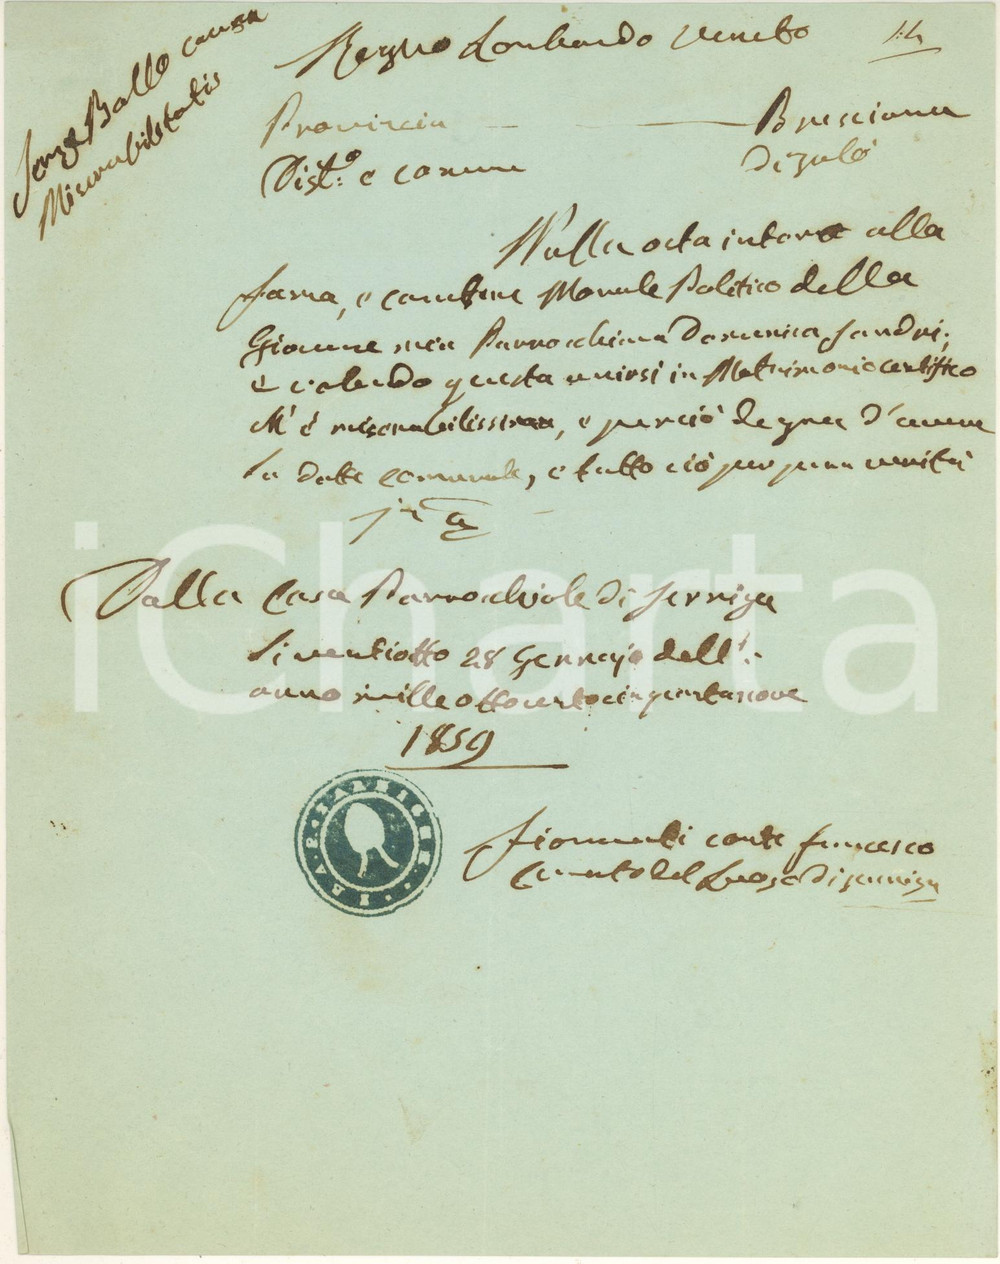 Senza Bollo causa
Miserabilitatis
Regno Lombardo Veneto
Provincia — Bresciana
Dist.o e comune di Salò
Nulla osta intorno alla
fama, e condotta Morale Politico della
Giovine mia Parrocchiana Domenica Sandri;
e volendo questa unirsi in Matrimonio certifico
ch' è miserabilissima, e perciò degna d'avere
la dotte comunale, e tutto ciò per pura verità
in
Dalla Casa Parrocchiale di Serniga
li ventiotto 28 Gennajo dell'
anno mille ottocentocinquantanove
1859
conte Francesco
Curato del Luogo di Serniga
iCharta